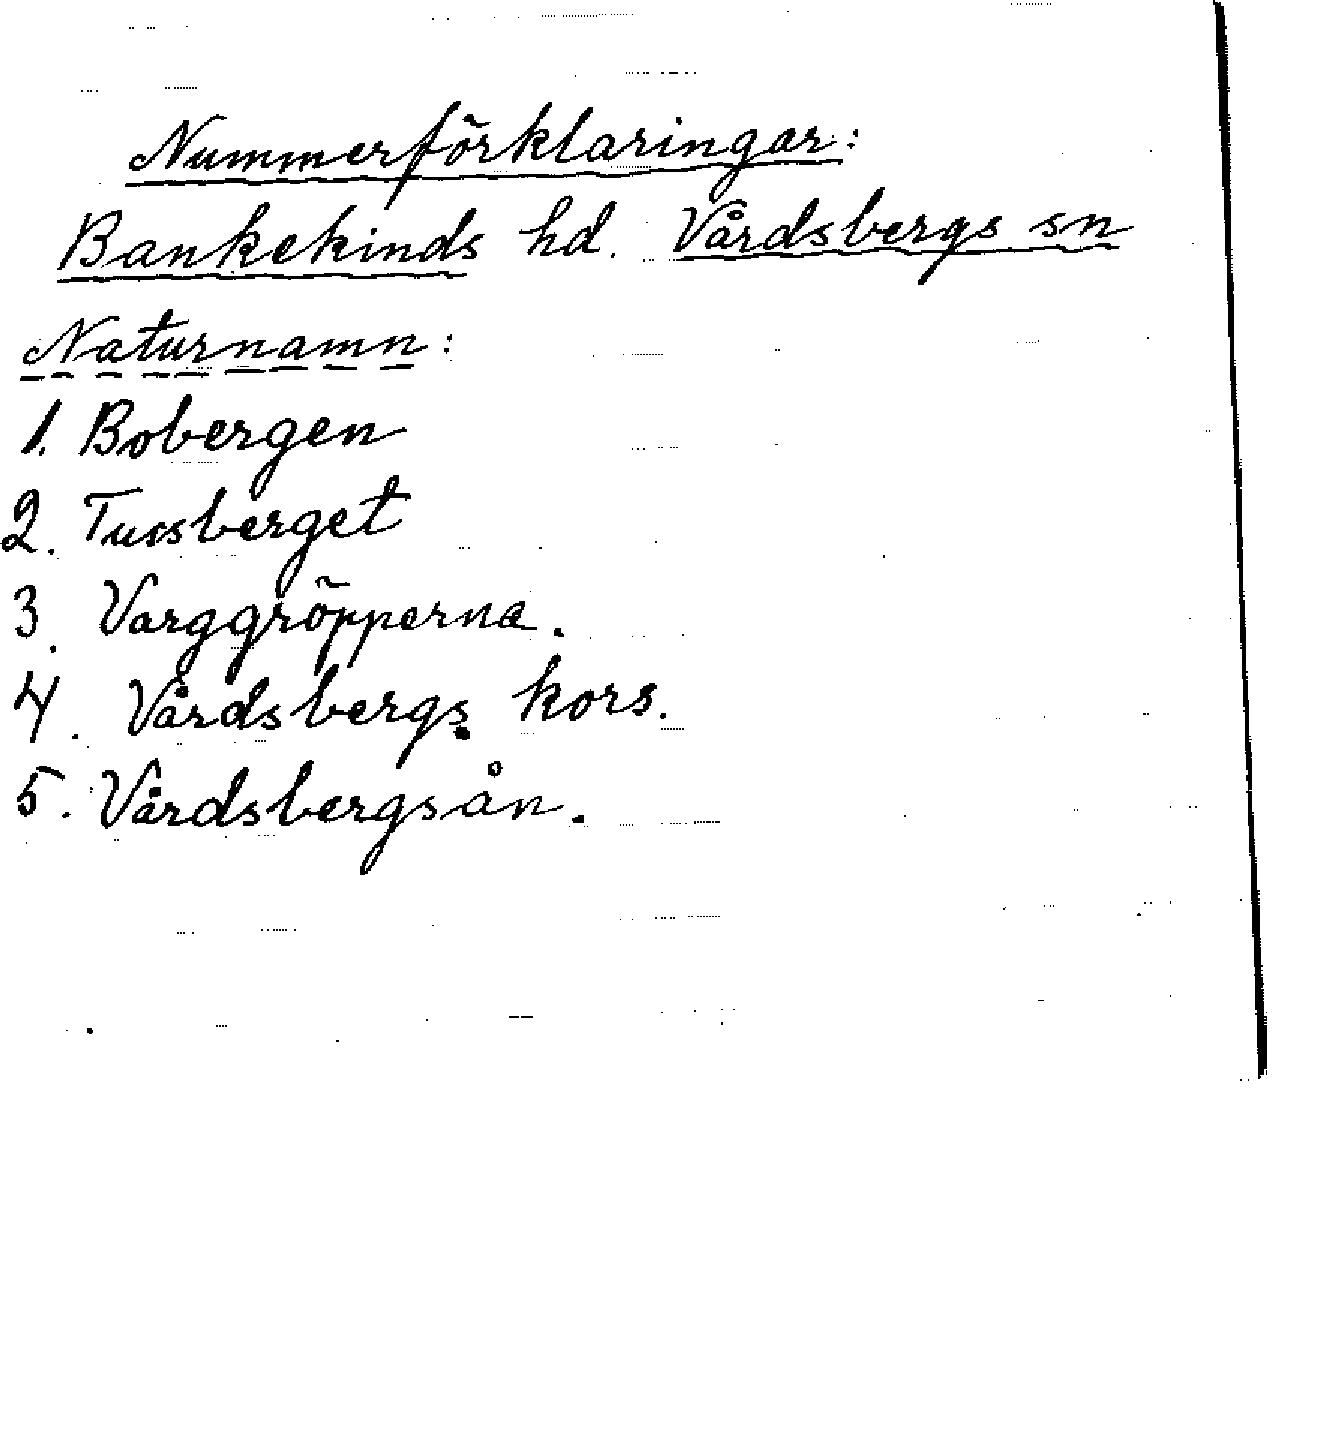 Nummerförklaringar:
Bankekinds hd. Vårdsbergs sn
Naturnamn:
1. Bobergen
2. Tussberget
3. Varggröpperna.
4. Vårdsbergs kors.
5. Vårdsbergsån.